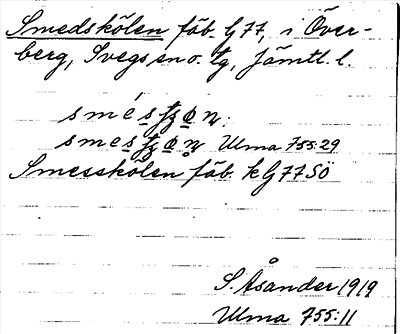 Smedskölen fäb. G77, i Över-
berg, Svegs sn o. tg, Jämtl. l.
Ulma 755:29
Smesskölen fäb. k G77SÖ
S. Åsander 1919
Ulma 755:11